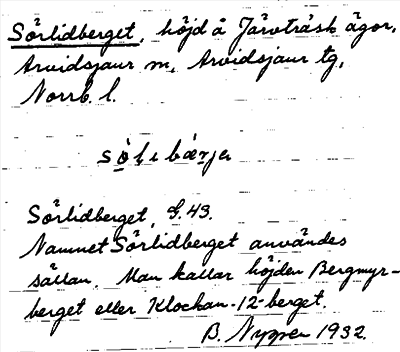 Sörlidberget, höjd å Järvträsk ägor,
Arvidsjaur sn, Arvidsjaur tg,
Norrb. l.
Sörlidberget, G.43.
Namnet Sörlidberget användes
sällan. Man kallar höjden Bergmyr-
berget eller Klockan-12-berget.
B. Nyppen 1932.